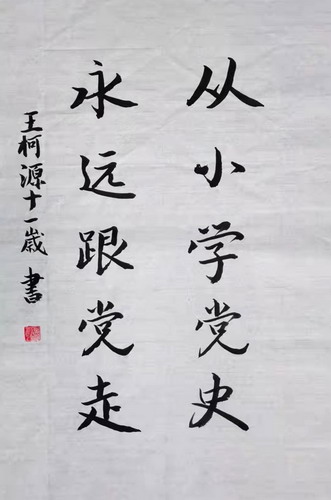 从小学党史
永远跟党走
王柯源十一歲書